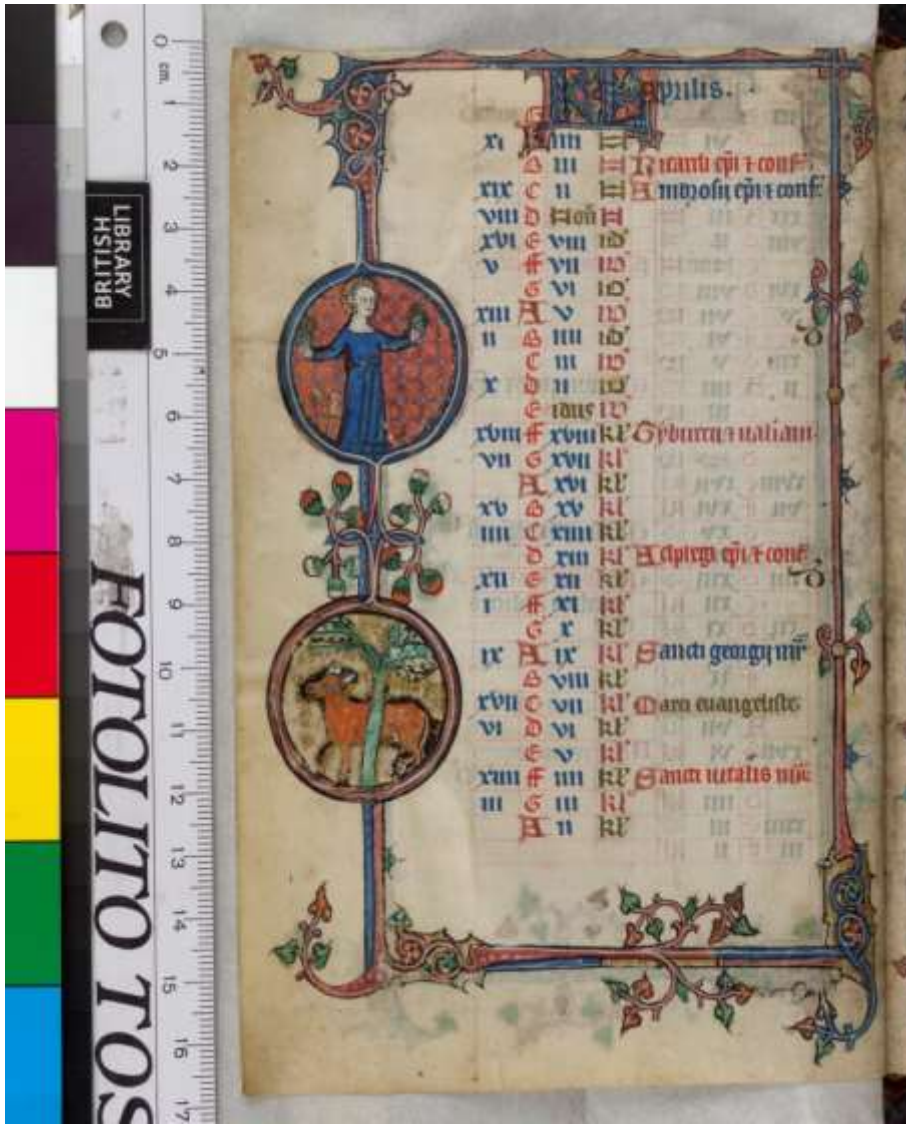 LIBRARY
HSITIRB
FOTOLITO TOS
0 cm. 1 2 3 4 5 6 7 8 9 10 11 12 13 14 15 16 17
Aprilis.
G
xi A iiii N
B iii N Ricardi epi ⁊ conf
xix C ii N Ambrosii epi ⁊ conf
viii D Non N
xvi E viii id'
v ff vii id'
G vi id'
xiii A v id'
ii B iiii id'
C iii id'
x D ii id'
E idus id'
xviii ff xviii kl'
vii G xvii kl'
A xvi kl'
xv B xv kl'
iiii C xiiii kl'
D xiii kl' Alphegi epi ⁊ conf
xii E xii kl'
i ff xi kl'
G x kl'
ix A ix kl' Sancti georgij mr
B viii kl'
xvii C vii kl' Marci euangeliste
vi D vi kl'
E v kl'
xiiii ff iiii kl' Sancti uitalis mr
iii G iii kl'
A ii kl'